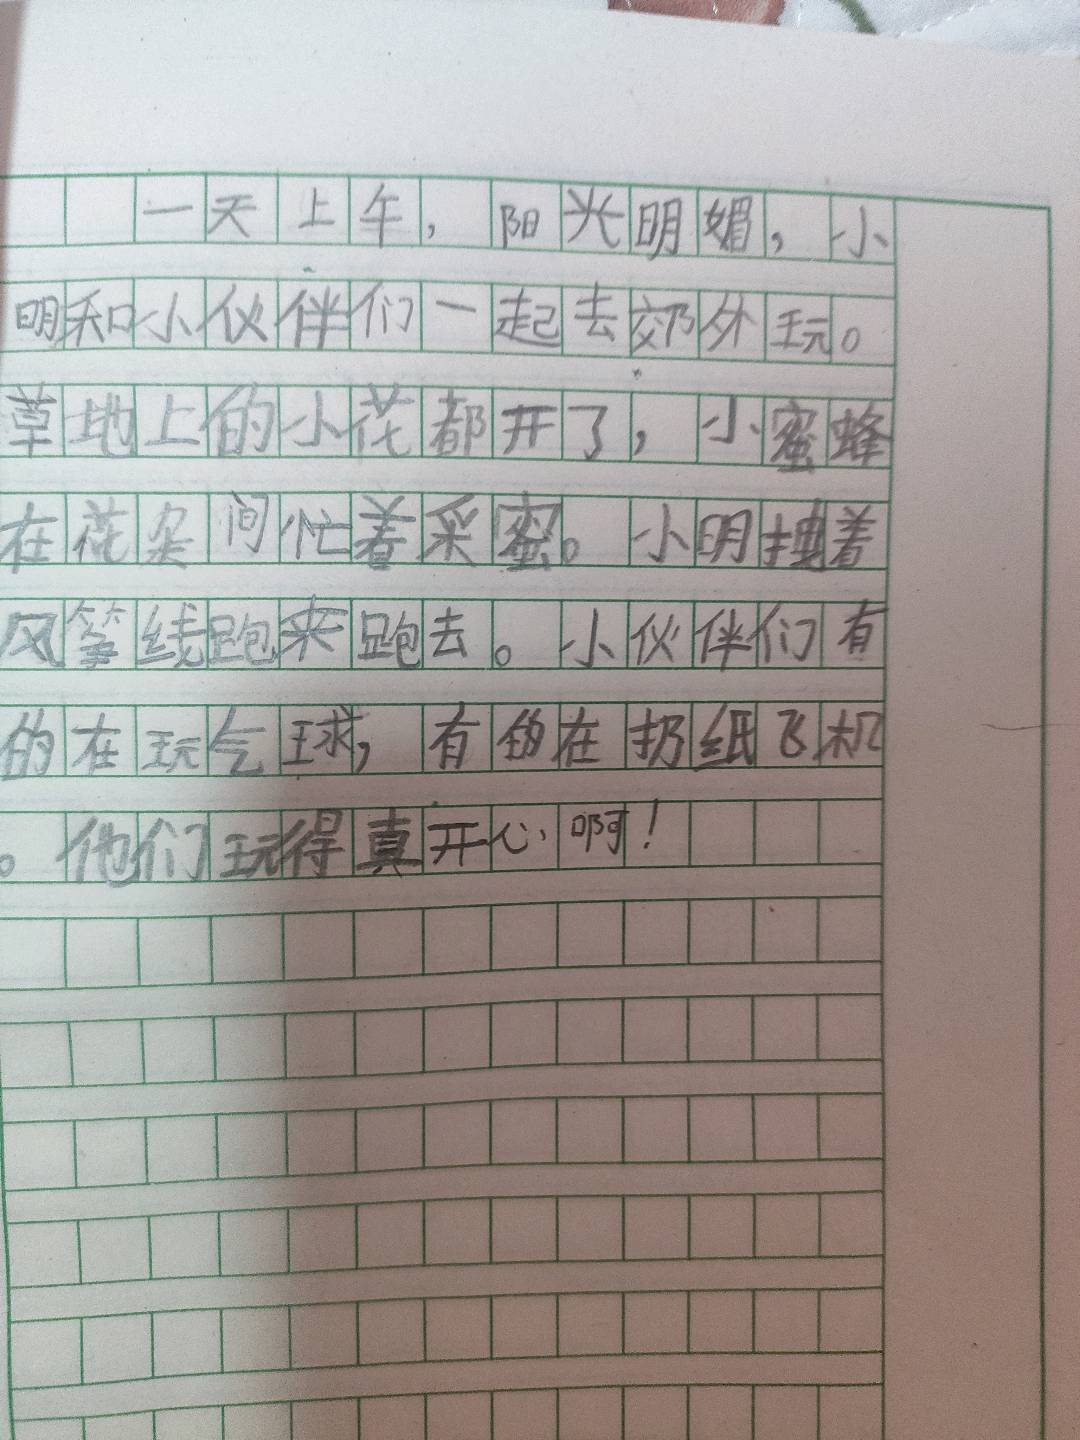 一天上午，阳光明媚，小
明和小伙伴们一起去郊外玩。
草地上的小花都开了，小蜜蜂
在花朵间忙着采蜜。小明拽着
风筝线跑来跑去。小伙伴们有
的在玩气球，有的在扔纸飞机
。他们玩得真开心啊！